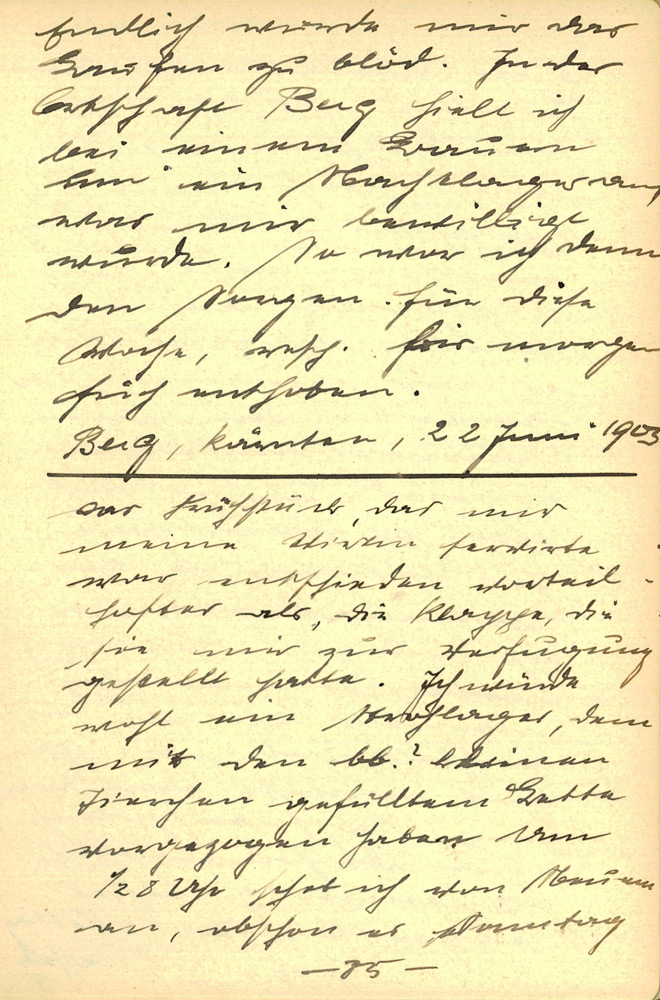 Endlich wurde mir das
Laufen zu blöd. In der
Ortschaft Berg hielt ich
bei einem Bauern
um ein Nachtlager an,
was mir bewilligt
wurde. So war ich denn
den Sorgen für diese
Woche, resp. bis morgen
früh enthoben.
Berg, Kärnten, 22 Juni 1903
Das Frühstück, das mir
meine Wirtin servirte
war entschieden vorteil-
hafter als, die Klappe, die
sie mir zur Verfügung
gestellt hatte. Ich würde
wohl ein Strohlager, dem
mit den bb.? kleinen
Tierchen gefülltem Bette
vorgezogen haben. Um
1/2 8 Uhr schob ich von Neuem
an, obschon es Sonntag
- 85 -